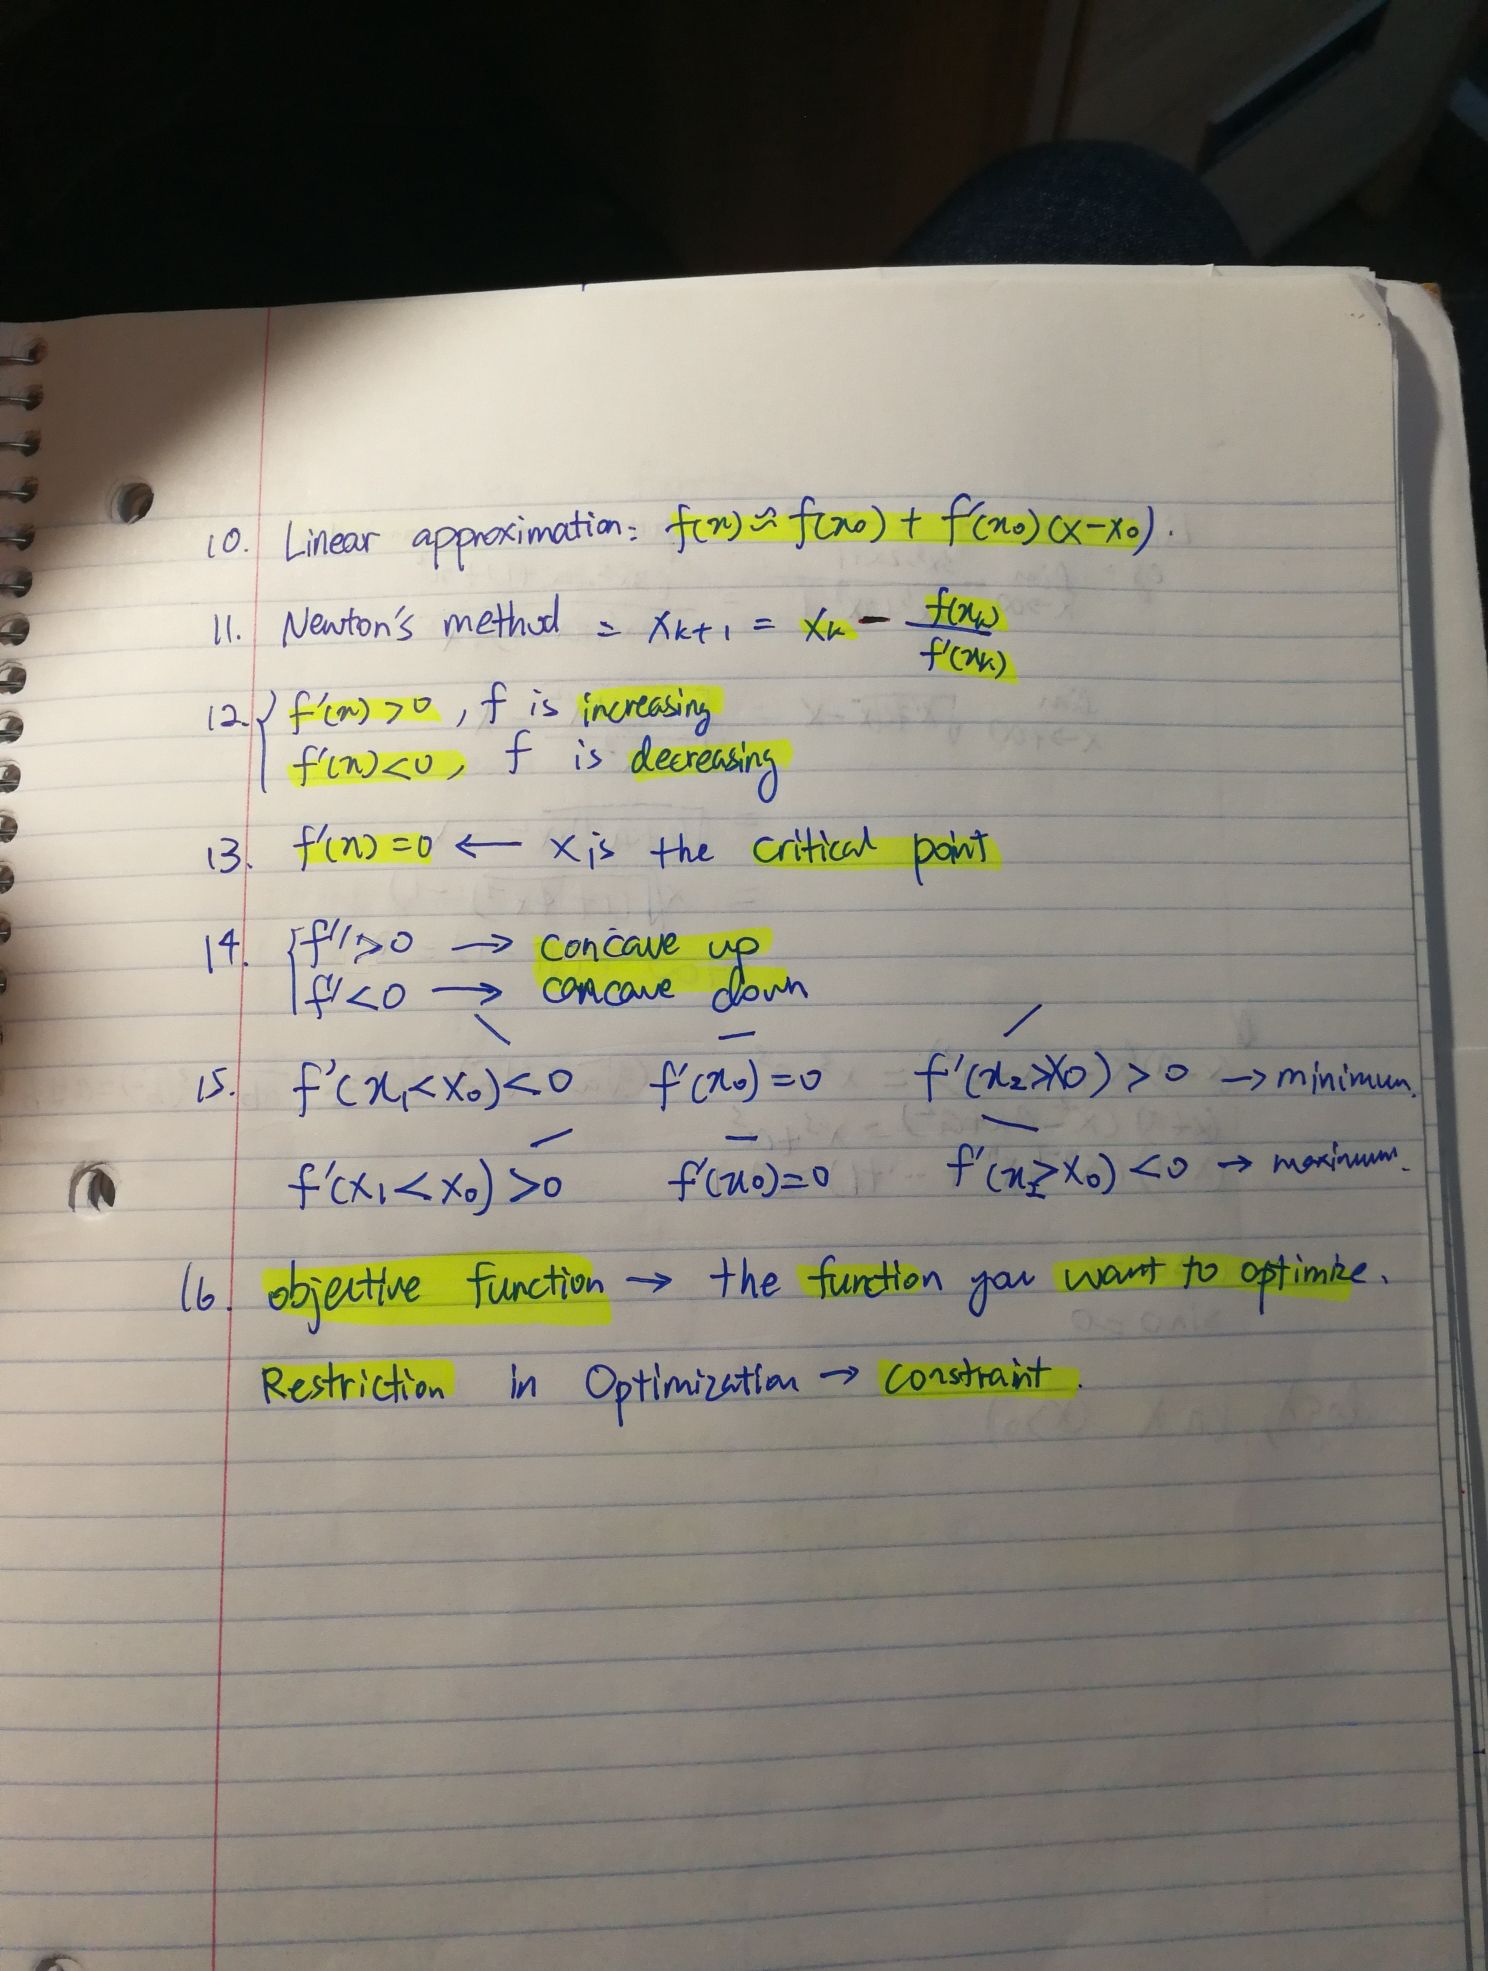 10. Linear approximation: f(x) ≈ f(x₀) + f'(x₀)(x-x₀).
11. Newton's method = xₖ₊₁ = xₖ - f(xₖ)/f'(xₖ)
12. { f'(x) > 0, f is increasing
f'(x) < 0, f is decreasing
13. f'(x) = 0 ← x is the critical point
14. { f'' > 0 → concave up
f'' < 0 → concave down
15. f'(x₁<x₀)<0 f'(x₀)=0 f'(x₂>x₀)>0 → minimum.
f'(x₁<x₀)>0 f'(x₀)=0 f'(x₂>x₀)<0 → maximum.
16. objective function → the function you want to optimize.
Restriction in Optimization → constraint.